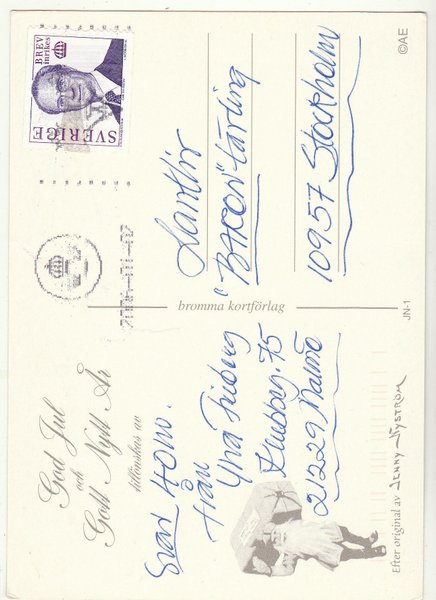 God Jul
och
Gott Nytt År
tillönskas av
Svar 40 w.
från
Yná Friberg
21229 Malmö
Efter original av JENNY NYSTRÖM
bromma kortförlag
JN-1
SVERIGE
BREV
inrikes
"BACON" tärning
10957 Stockholm
©AE